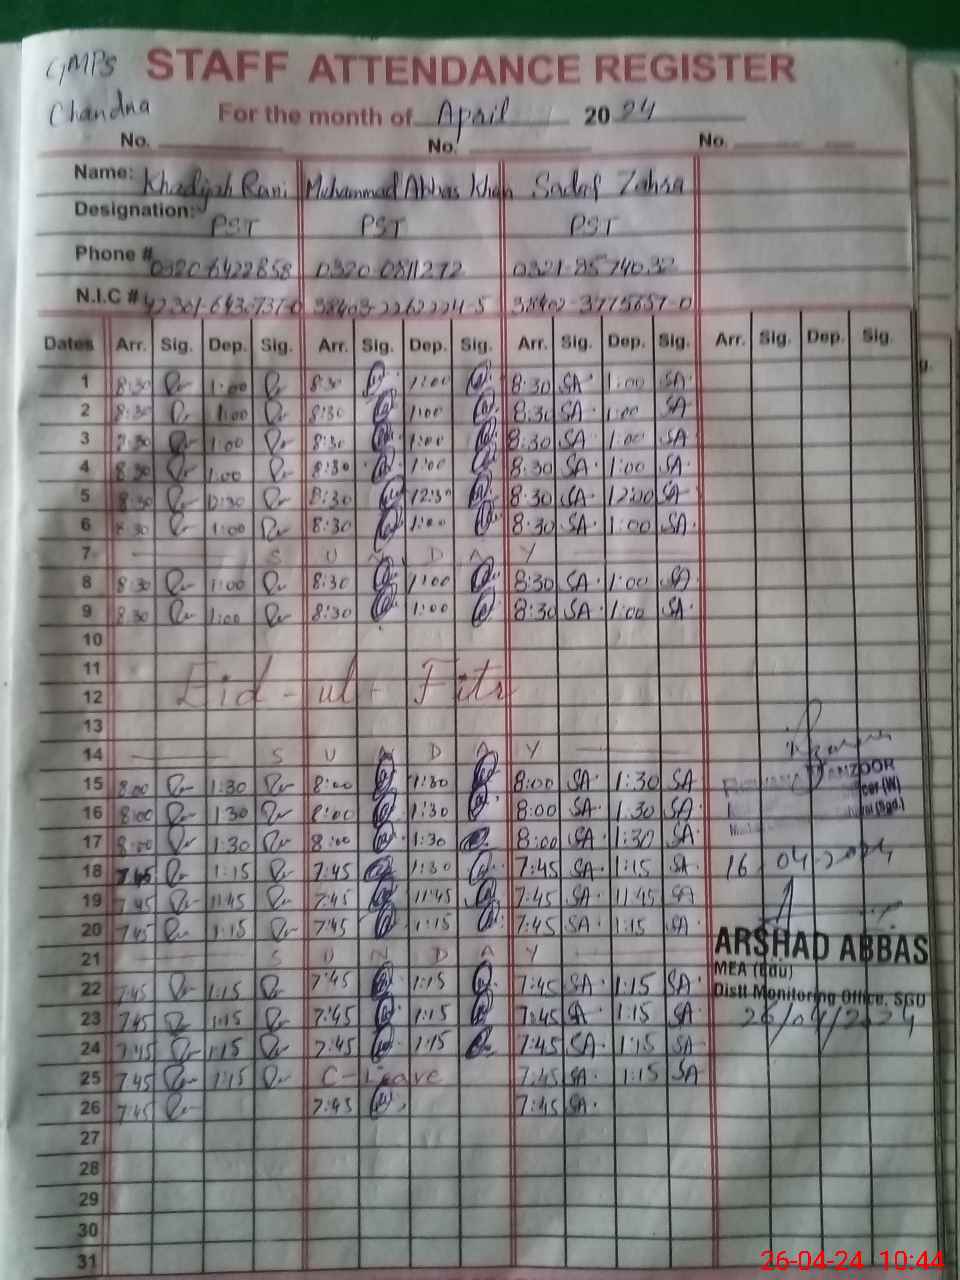 GMPS STAFF ATTENDANCE REGISTER
Chandna For the month of April 2024
No. No. No.
Name: Khadijah Rani Muhammad Abbas Khan Sadaf Zahra
Designation: PST PST PST
Phone # 0320-6422858 0320-0811272 0321-8574032
N.I.C # 38403-2262224-5 38402-3775657-0
Dates Arr. Sig. Dep. Sig. Arr. Sig. Dep. Sig. Arr. Sig. Dep. Sig. Arr. Sig. Dep. Sig.
1 8:30 1:00 8:30 1:00 8:30 SA 1:00 SA
2 8:30 1:00 8:30 1:00 8:30 SA 1:00 SA
3 8:30 1:00 8:30 1:00 8:30 SA 1:00 SA
4 8:30 1:00 8:30 1:00 8:30 SA 1:00 SA
5 8:30 12:30 8:30 12:30 8:30 SA 12:00 SA
6 8:30 1:00 8:30 1:00 8:30 SA 1:00 SA
7 S U N D A Y
8 8:30 1:00 8:30 1:00 8:30 SA 1:00 SA
9 8:30 1:00 8:30 1:00 8:30 SA 1:00 SA
10
11
12 Eid-ul-Fitr
13
14 S U N D A Y
15 8:00 1:30 8:00 1:30 8:00 SA 1:30 SA
16 8:00 1:30 8:00 1:30 8:00 SA 1:30 SA
17 8:00 1:30 8:00 1:30 8:00 SA 1:30 SA
18 7:45 1:15 7:45 1:30 7:45 SA 1:15 SA
19 7:45 11:45 7:45 11:45 7:45 SA 11:45 SA
20 7:45 1:15 7:45 1:15 7:45 SA 1:15 SA
21 S U N D A Y
22 7:45 1:15 7:45 1:15 7:45 SA 1:15 SA
23 7:45 1:15 7:45 1:15 7:45 SA 1:15 SA
24 7:45 1:15 7:45 1:15 7:45 SA 1:15 SA
25 7:45 1:15 C-Leave 7:45 SA 1:15 SA
26 7:45 7:45 7:45 SA
27
28
29
30
31
MANZOOR
16/04-2024
ARSHAD ABBAS
MEA (Edu)
Distt Monitoring Office, SGD
26/04/2024
26-04-24 10:44